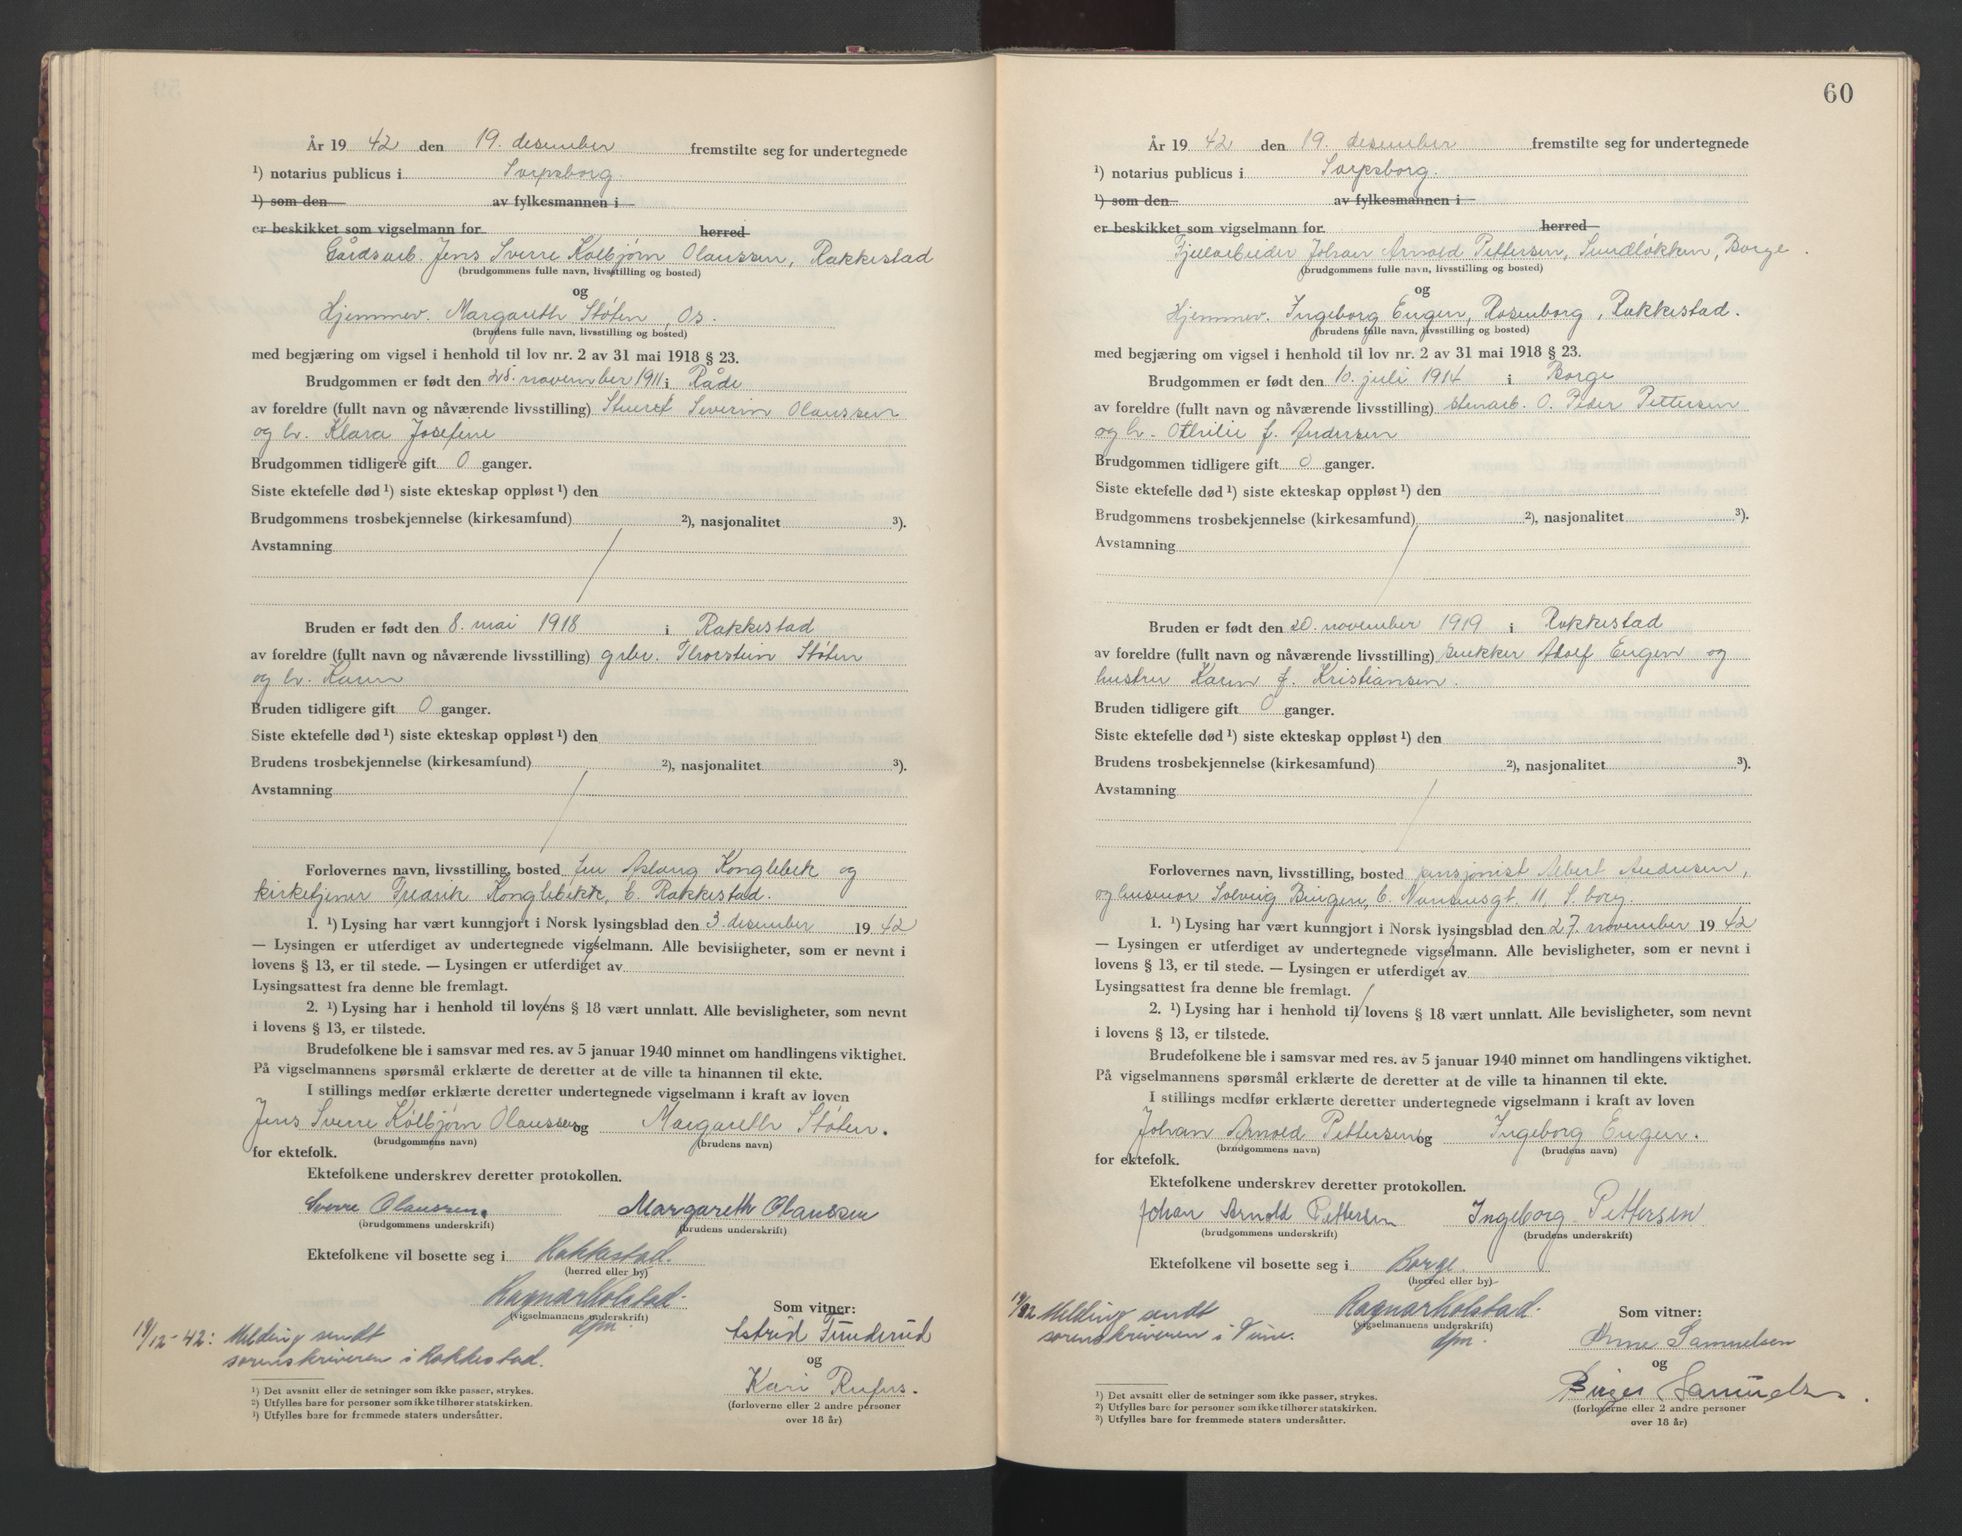 År 19 42 den 19. desember fremstilte seg for undertegnede
¹) notarius publicus i Sarpsborg.
¹) som den av fylkesmannen i
er beskikket som vigselmann for herred
Gårdsarb. Jens Sverre Kolbjørn Olaussen, Rakkestad
(brudgommens fulle navn, livsstilling og bosted)
og
Hjemmev. Margareth Støten, Os.
(brudens fulle navn, livsstilling og bosted)
med begjæring om vigsel i henhold til lov nr. 2 av 31 mai 1918 § 23.
Brudgommen er født den 28. november 1911 i Råde
av foreldre (fullt navn og nåværende livsstilling) Severin Olaussen
og h. Klara Josefine
Brudgommen tidligere gift 0 ganger.
Siste ektefelle død ¹) siste ekteskap oppløst ¹) den
Brudgommens trosbekjennelse (kirkesamfund) ²), nasjonalitet ³).
Avstamning
Bruden er født den 8. mai 1918 i Rakkestad
av foreldre (fullt navn og nåværende livsstilling) grbr. Thorstein Støten
og h. Karen
Bruden tidligere gift 0 ganger.
Siste ektefelle død ¹) siste ekteskap oppløst ¹) den
Brudens trosbekjennelse (kirkesamfund) ²), nasjonalitet ³).
Avstamning
Forlovernes navn, livsstilling, bosted fru Aslaug Konglebek og
kirketjener Fredrik Konglebekk, b. Rakkestad.
1. ¹) Lysing har vært kunngjort i Norsk lysingsblad den 3. desember 19 42
— Lysingen er utferdiget av undertegnede vigselmann. Alle bevisligheter, som er nevnt i
lovens § 13, er til stede. — Lysingen er utferdiget av
Lysingsattest fra denne ble fremlagt.
2. ¹) Lysing har i henhold til lovens § 18 vært unnlatt. Alle bevisligheter, som nevnt
i lovens § 13, er tilstede.
Brudefolkene ble i samsvar med res. av 5 januar 1940 minnet om handlingens viktighet.
På vigselmannens spørsmål erklærte de deretter at de ville ta hinannen til ekte.
I stillings medfør erklærte deretter undertegnede vigselmann i kraft av loven
Jens Sverre Kolbjørn Olaussen og Margareth Støten.
(brudgommens navn) (brudens navn)
for ektefolk.
Ektefolkene underskrev deretter protokollen.
Sverre Olaussen. Margareth Olaussen
(brudgommens underskrift) (brudens underskrift)
Ektefolkene vil bosette seg i Rakkestad.
(herred eller by)
Ragnar Holstad.
(vigselmannens underskrift)
dfm.
Som vitner:
Astrid Funderud
og
Kari Rufus.
(forloverne eller 2 andre personer
over 18 år)
19/12-42: Melding sendt
sorenskriveren i Rakkestad.
¹) Det avsnitt eller de setninger som ikke passer, strykes.
²) Utfylles bare for personer som ikke tilhører statskirken.
³) Utfylles bare for fremmede staters undersåtter.
60
År 19 42 den 19. desember fremstilte seg for undertegnede
¹) notarius publicus i Sarpsborg.
¹) som den av fylkesmannen i
er beskikket som vigselmann for herred
Fjellarbeider Johan Arnold Pettersen, Sundløkken, Borge.
(brudgommens fulle navn, livsstilling og bosted)
og
Hjemmev. Ingeborg Engen, Rosenborg, Rakkestad.
(brudens fulle navn, livsstilling og bosted)
med begjæring om vigsel i henhold til lov nr. 2 av 31 mai 1918 § 23.
Brudgommen er født den 10. juli 1914 i Borge
av foreldre (fullt navn og nåværende livsstilling) stenarb. O. Peder Pettersen
og h. Othilie f. Andersen
Brudgommen tidligere gift 0 ganger.
Siste ektefelle død ¹) siste ekteskap oppløst ¹) den
Brudgommens trosbekjennelse (kirkesamfund) ²), nasjonalitet ³).
Avstamning
Bruden er født den 20. november 1919 i Rakkestad
av foreldre (fullt navn og nåværende livsstilling) snekker Adolf Engen og
hustru Karen f. Kristiansen.
Bruden tidligere gift 0 ganger.
Siste ektefelle død ¹) siste ekteskap oppløst ¹) den
Brudens trosbekjennelse (kirkesamfund) ²), nasjonalitet ³).
Avstamning
Forlovernes navn, livsstilling, bosted pensjonist Albert Andersen,
og husmor Solveig Bingen, b. Nansensgt. 11, S.borg.
1. ¹) Lysing har vært kunngjort i Norsk lysingsblad den 27. november 19 42
— Lysingen er utferdiget av undertegnede vigselmann. Alle bevisligheter, som er nevnt i
lovens § 13, er til stede. — Lysingen er utferdiget av
Lysingsattest fra denne ble fremlagt.
2. ¹) Lysing har i henhold til lovens § 18 vært unnlatt. Alle bevisligheter, som nevnt
i lovens § 13, er tilstede.
Brudefolkene ble i samsvar med res. av 5 januar 1940 minnet om handlingens viktighet.
På vigselmannens spørsmål erklærte de deretter at de ville ta hinannen til ekte.
I stillings medfør erklærte deretter undertegnede vigselmann i kraft av loven
Johan Arnold Pettersen og Ingeborg Engen.
(brudgommens navn) (brudens navn)
for ektefolk.
Ektefolkene underskrev deretter protokollen.
Johan Arnold Pettersen Ingeborg Pettersen
(brudgommens underskrift) (brudens underskrift)
Ektefolkene vil bosette seg i Borge.
(herred eller by)
Ragnar Holstad.
(vigselmannens underskrift)
dfm.
Som vitner:
Anne Samuelsen
og
Birger Samuelsen.
(forloverne eller 2 andre personer
over 18 år)
Melding sendt
sorenskriveren i Tune.
¹) Det avsnitt eller de setninger som ikke passer, strykes.
²) Utfylles bare for personer som ikke tilhører statskirken.
³) Utfylles bare for fremmede staters undersåtter.